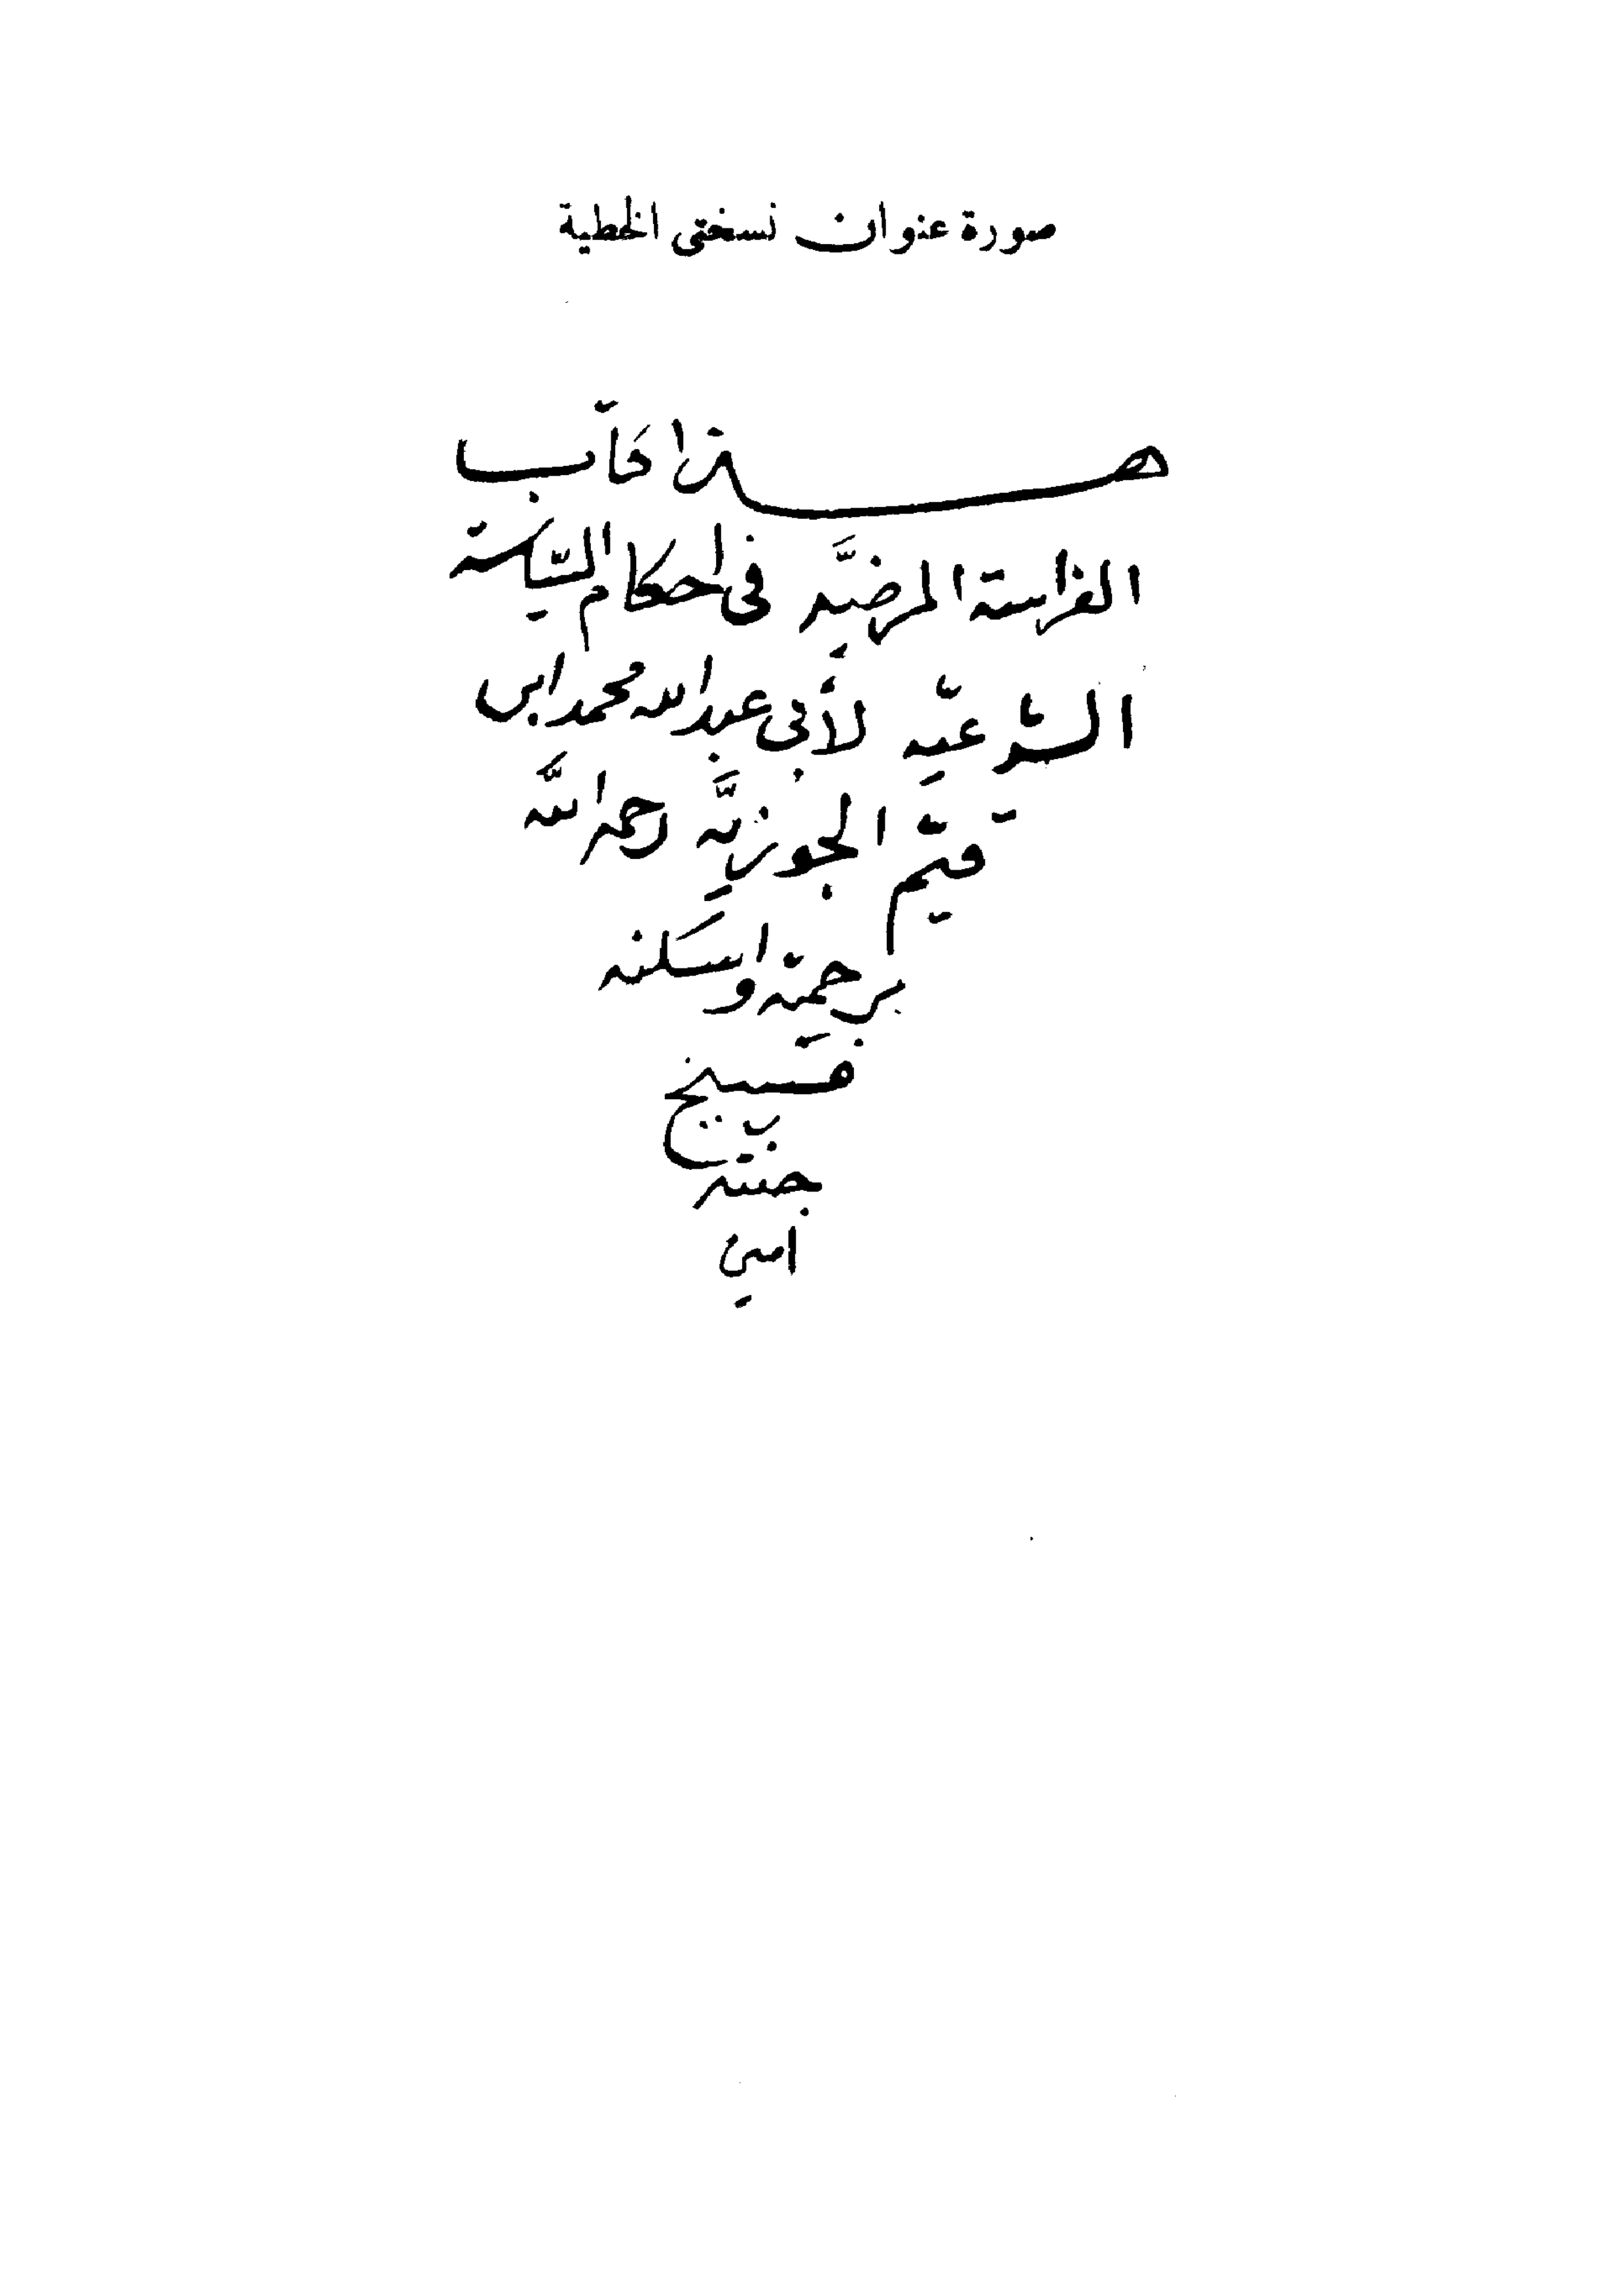 صورة عنوان نسختى الخطية
هذا كتاب
الفراسة المرضيَّه فى احكام السّياسة
الشرعيّه لأبى عبد الله محمد ابن
قيّم الجوزيَّه رحمه اللَّه
برحمته واسكنه
فسيح
جنته
امين